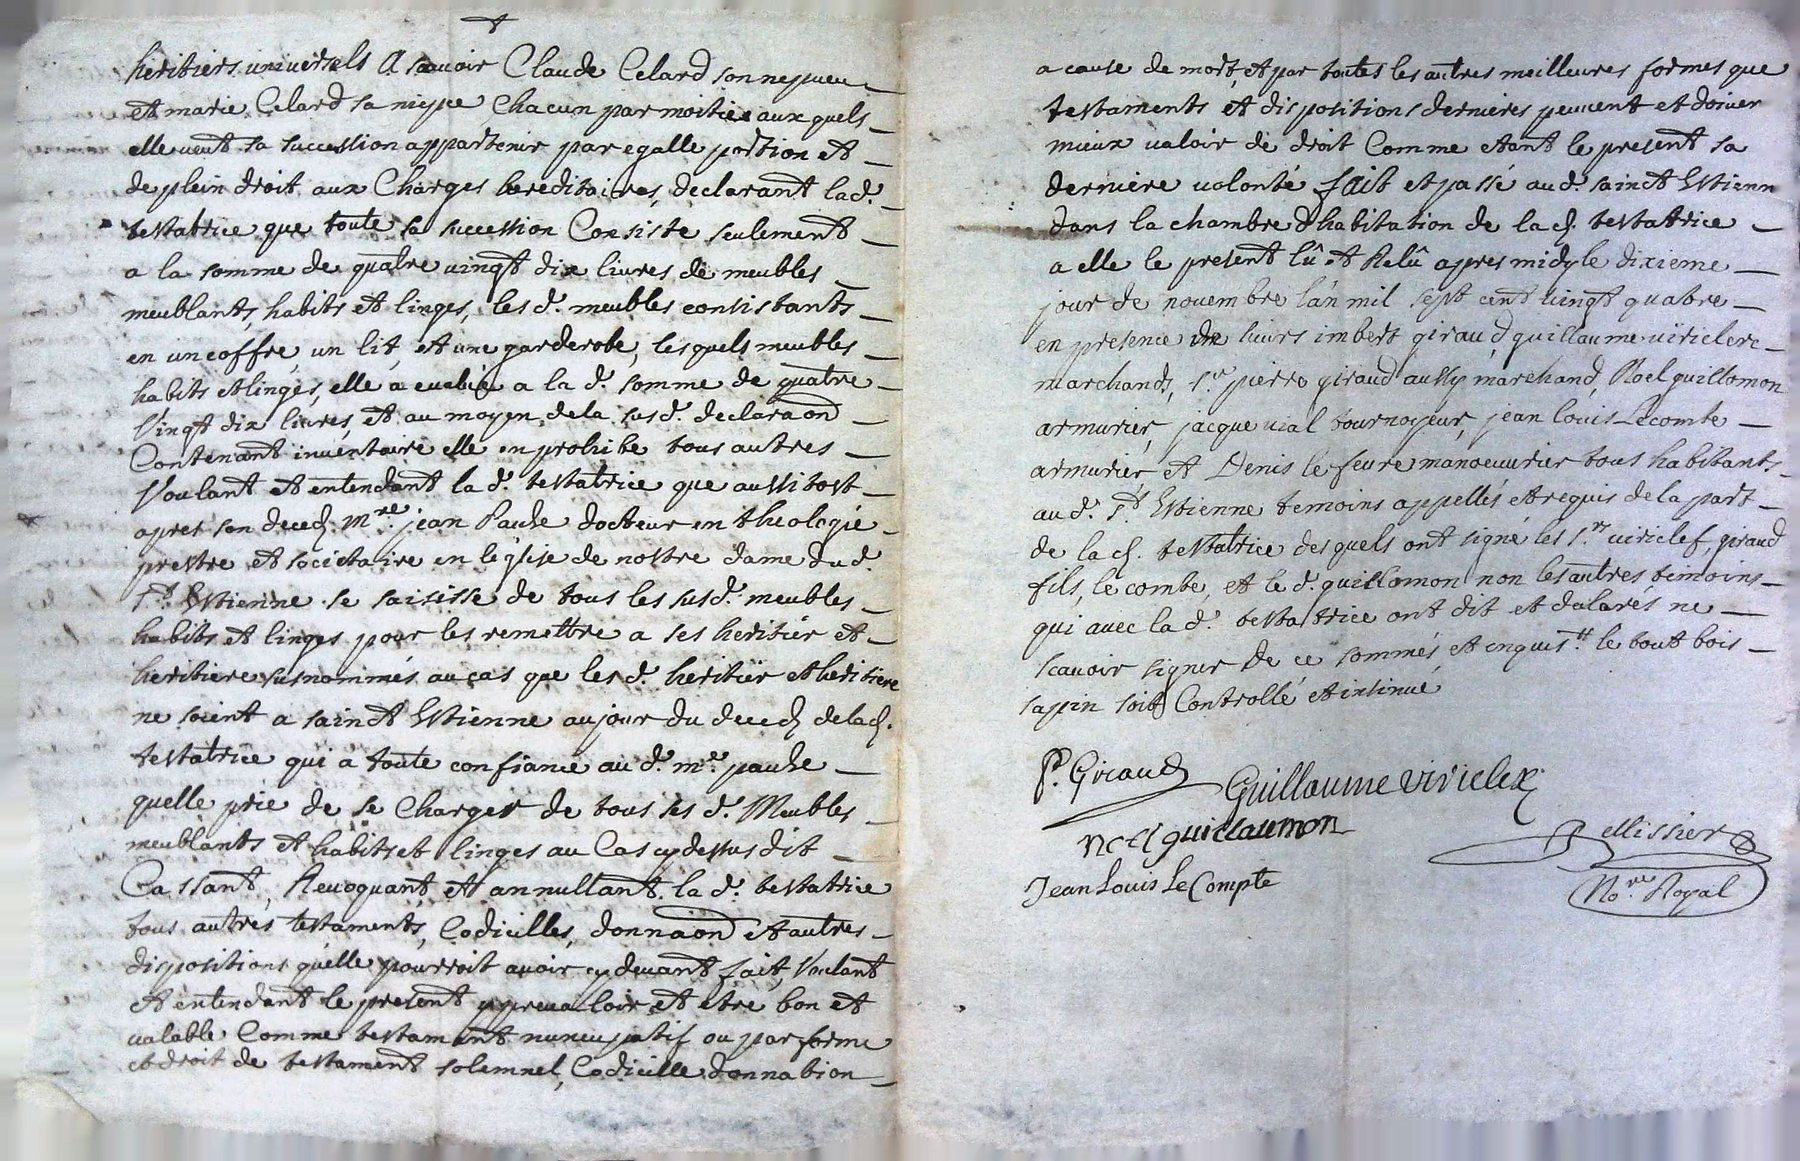 heritiers universels A scavoir Claude Celard son nepueu
et marie Celard sa niepce chacun par moitié aux quels
elle veut sa succession appartenir par egalle portion et
de plein droit aux Charges hereditaires, declarant lad.
testatrice que toute sa succession Consiste seulement
a la somme de quatre vingt dix livres de meubles
meublants, habits et linges, les d. meubles consistants
en un coffre, un lit, et une garderobe, lesquels meubles
habits et linges, elle a evalué a la d. somme de quatre
Vingt dix livres, et au moyen de la susd. declaraon
Contenant inventaire elle en prohibe tous autres
Voulant et entendant la d. testatrice que aussitost
apres son deced. mre. jean Paule docteur en theologie
prestre et societaire en leglise de nostre dame du d.
St. Estienne se saisisse de tous les susd. meubles
habits et linges pour les remettre a ses heritier et
heritiere susnommés au cas que les d. heritier et heritiere
ne soient a sainct Estienne au jour du deced de lad.
testatrice qui a toute confiance au d. mre. paule
quelle prie de se Charger de tous ses d. Meubles
meublants et habits et linges au Cas cy dessus dit
Cassant, Revoquant, et annullant la d. testatrice
tous autres testaments, Codicilles, donnaon et autres
dispositions quelle pourroit avoir cy devant fait, Voulant
et entendant le present y prevaloir et etre bon et
valable Comme testament nuncupatif ou par forme
et droit de testament solemnel, Codicille, donnation
a cause de mort, et par toutes les autres meilleures formes que
testaments et dispositions dernieres peuvent et doivent
mieux valoir de droit Comme etant le present sa
derniere volonté fait et passé au d. sainct Estienne
dans la chambre d'habitation de la d. testatrice
a elle le present lû et Relû apres midy le dixieme
jour de novembre l'an mil sept cent vingt quatre
en presence de sieurs imbert giraud, guillaume viricler
marchands, sr. pierre giraud aussy marchand, Noel guillomon
armurier, jacque vial tournoyeur, jean louis Lecomte
armurier et Denis le feure manoeuvrier tous habitants
au d. St. Estienne temoins appellés et requis de la part
de la d. testatrice desquels ont signé les srs. viriclef, giraud
fils, le combe, et le d. guillomon non les autres temoins
qui avec la d. testatrice ont dit et declarés ne
scavoir signer de ce sommés et enquist. le tout bois
sapin soit Controllé et insinué
P. Giraud
Guillaume viriclex
noel guillaumon
Jean Louis Le Compte
Pellissier
No.re Royal